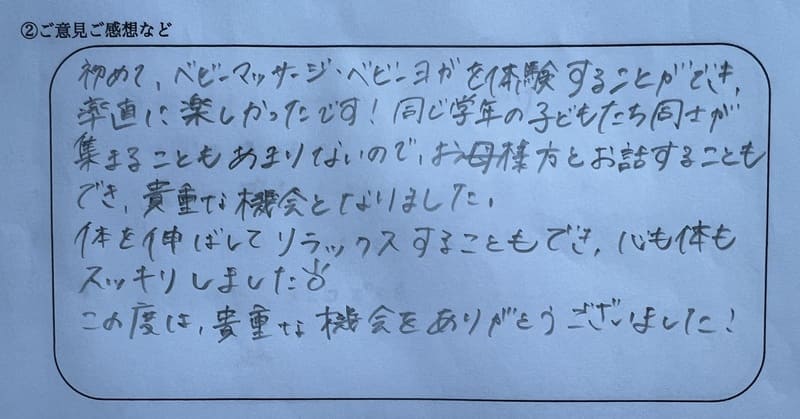 ②ご意見ご感想など
初めて、ベビーマッサージ・ベビーヨガを体験することができ、
率直に楽しかったです!同じ学年の子どもたち同士が
集まることもあまりないので、お母様方とお話することも
でき、貴重な機会となりました。
体を伸ばしてリラックスすることもでき、心も体も
スッキリしました
この度は、貴重な機会をありがとうございました!